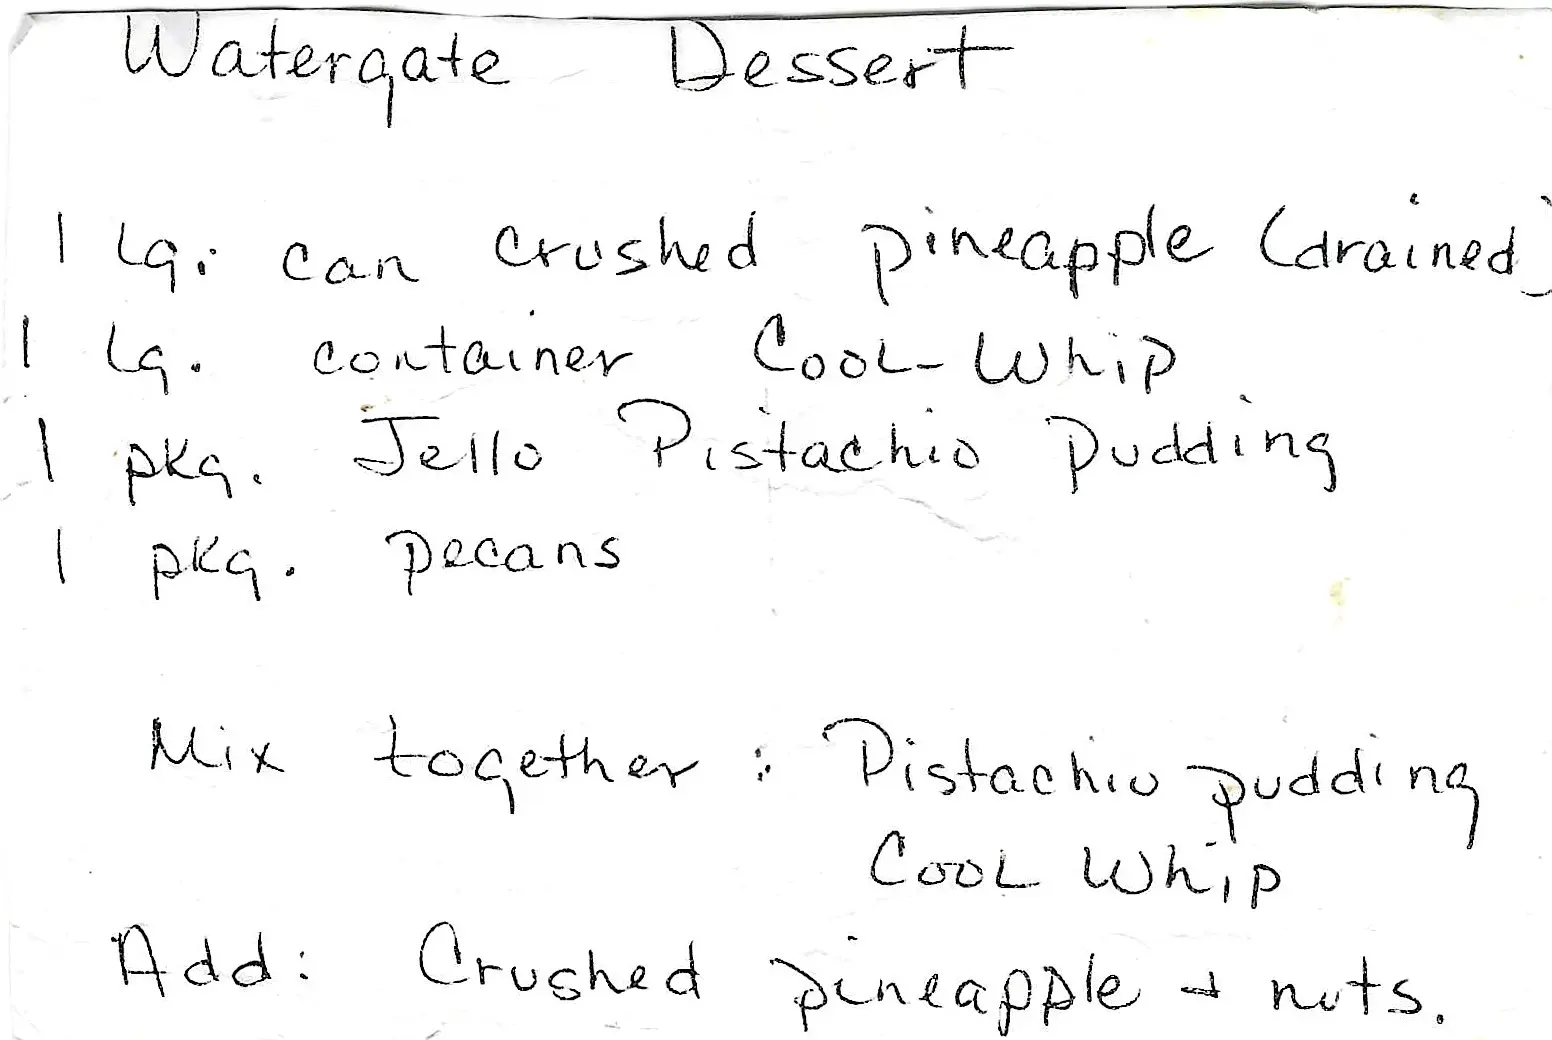 Watergate Dessert
1 Lg. can crushed pineapple (drained)
1 Lg. container Cool-Whip
1 pkg. Jello Pistachio Pudding
1 pkg. pecans
Mix together: Pistachio pudding
Cool Whip
Add: Crushed pineapple + nuts.